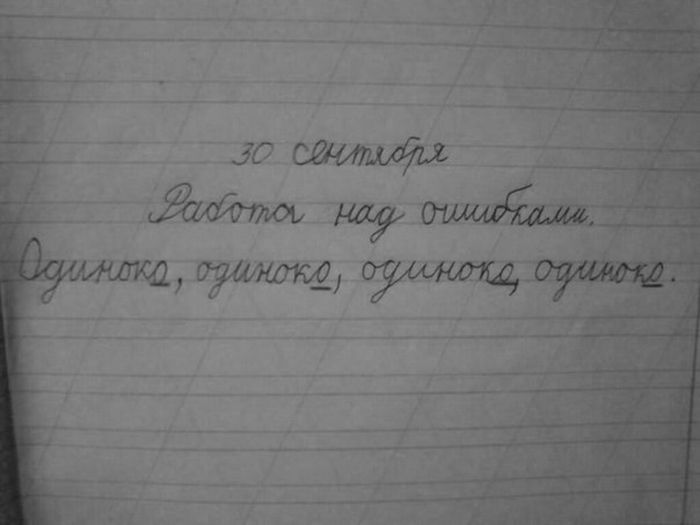 30 сентября
Работа над ошибками.
Одиноко, одиноко, одиноко, одиноко.